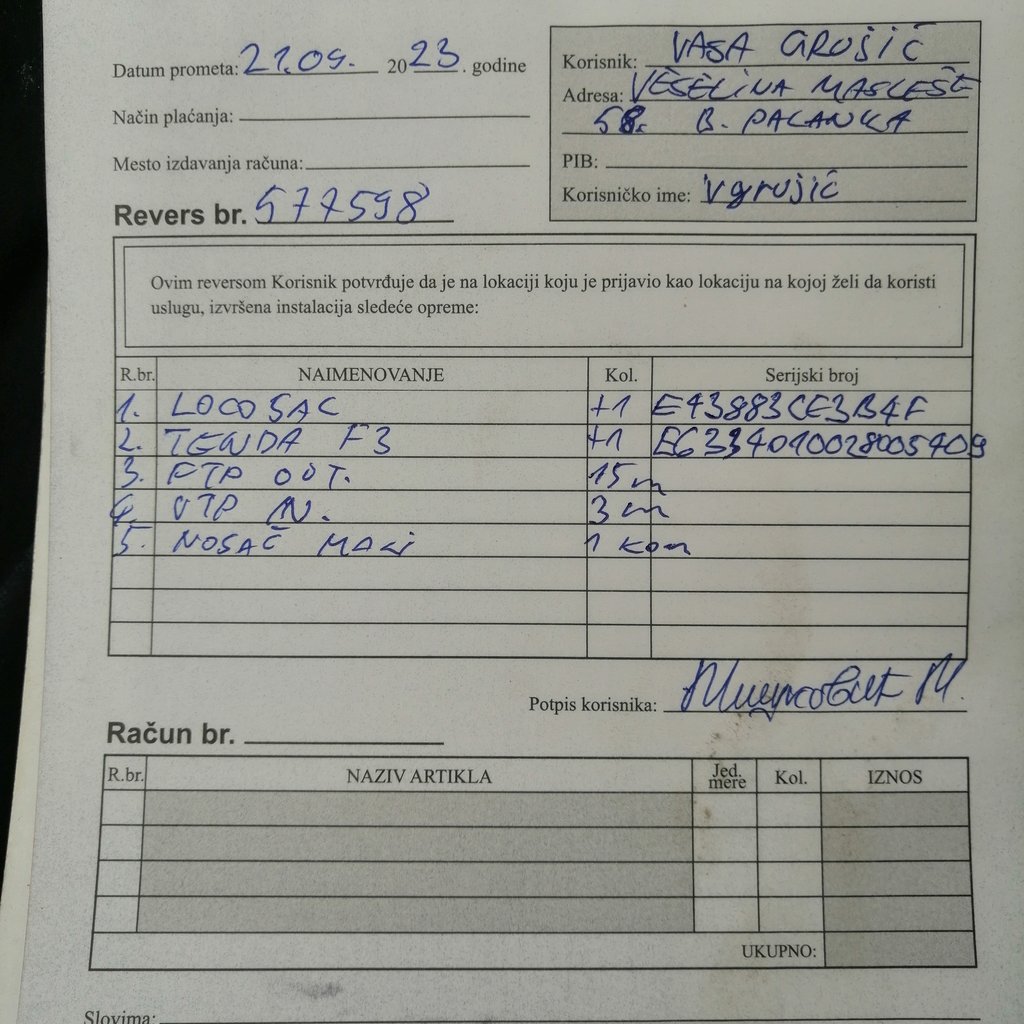 Datum prometa: 21.09. 2023. godine
Način plaćanja:
Mesto izdavanja računa:
Revers br. 577598
Korisnik: VASA GRUJIĆ
Adresa: VESELINA MASLEŠE
58. B. PALANKA
PIB:
Korisničko ime: vgrujić
Ovim reversom Korisnik potvrđuje da je na lokaciji koju je prijavio kao lokaciju na kojoj želi da koristi
uslugu, izvršena instalacija sledeće opreme:
R.br. NAIMENOVANJE Kol. Serijski broj
1. LOCO5AC +1 E43883CE3B4F
2. TENDA F3 +1 E6334010028005409
3. FTP OUT. 15m
4. UTP IN. 3m
5. NOSAČ MALI 1 kom
Potpis korisnika: М.
Račun br.
R.br. NAZIV ARTIKLA Jed. mere Kol. IZNOS
UKUPNO:
Slovima: